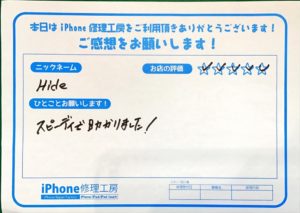 本日は iPhone 修理工房をご利用頂きありがとうございます!
ご感想をお願いします!
ニックネーム
お店の評価 ☆☆☆☆☆
Hide
ひとことお願いします!
スピーディで助かりました!
iPhone修理工房